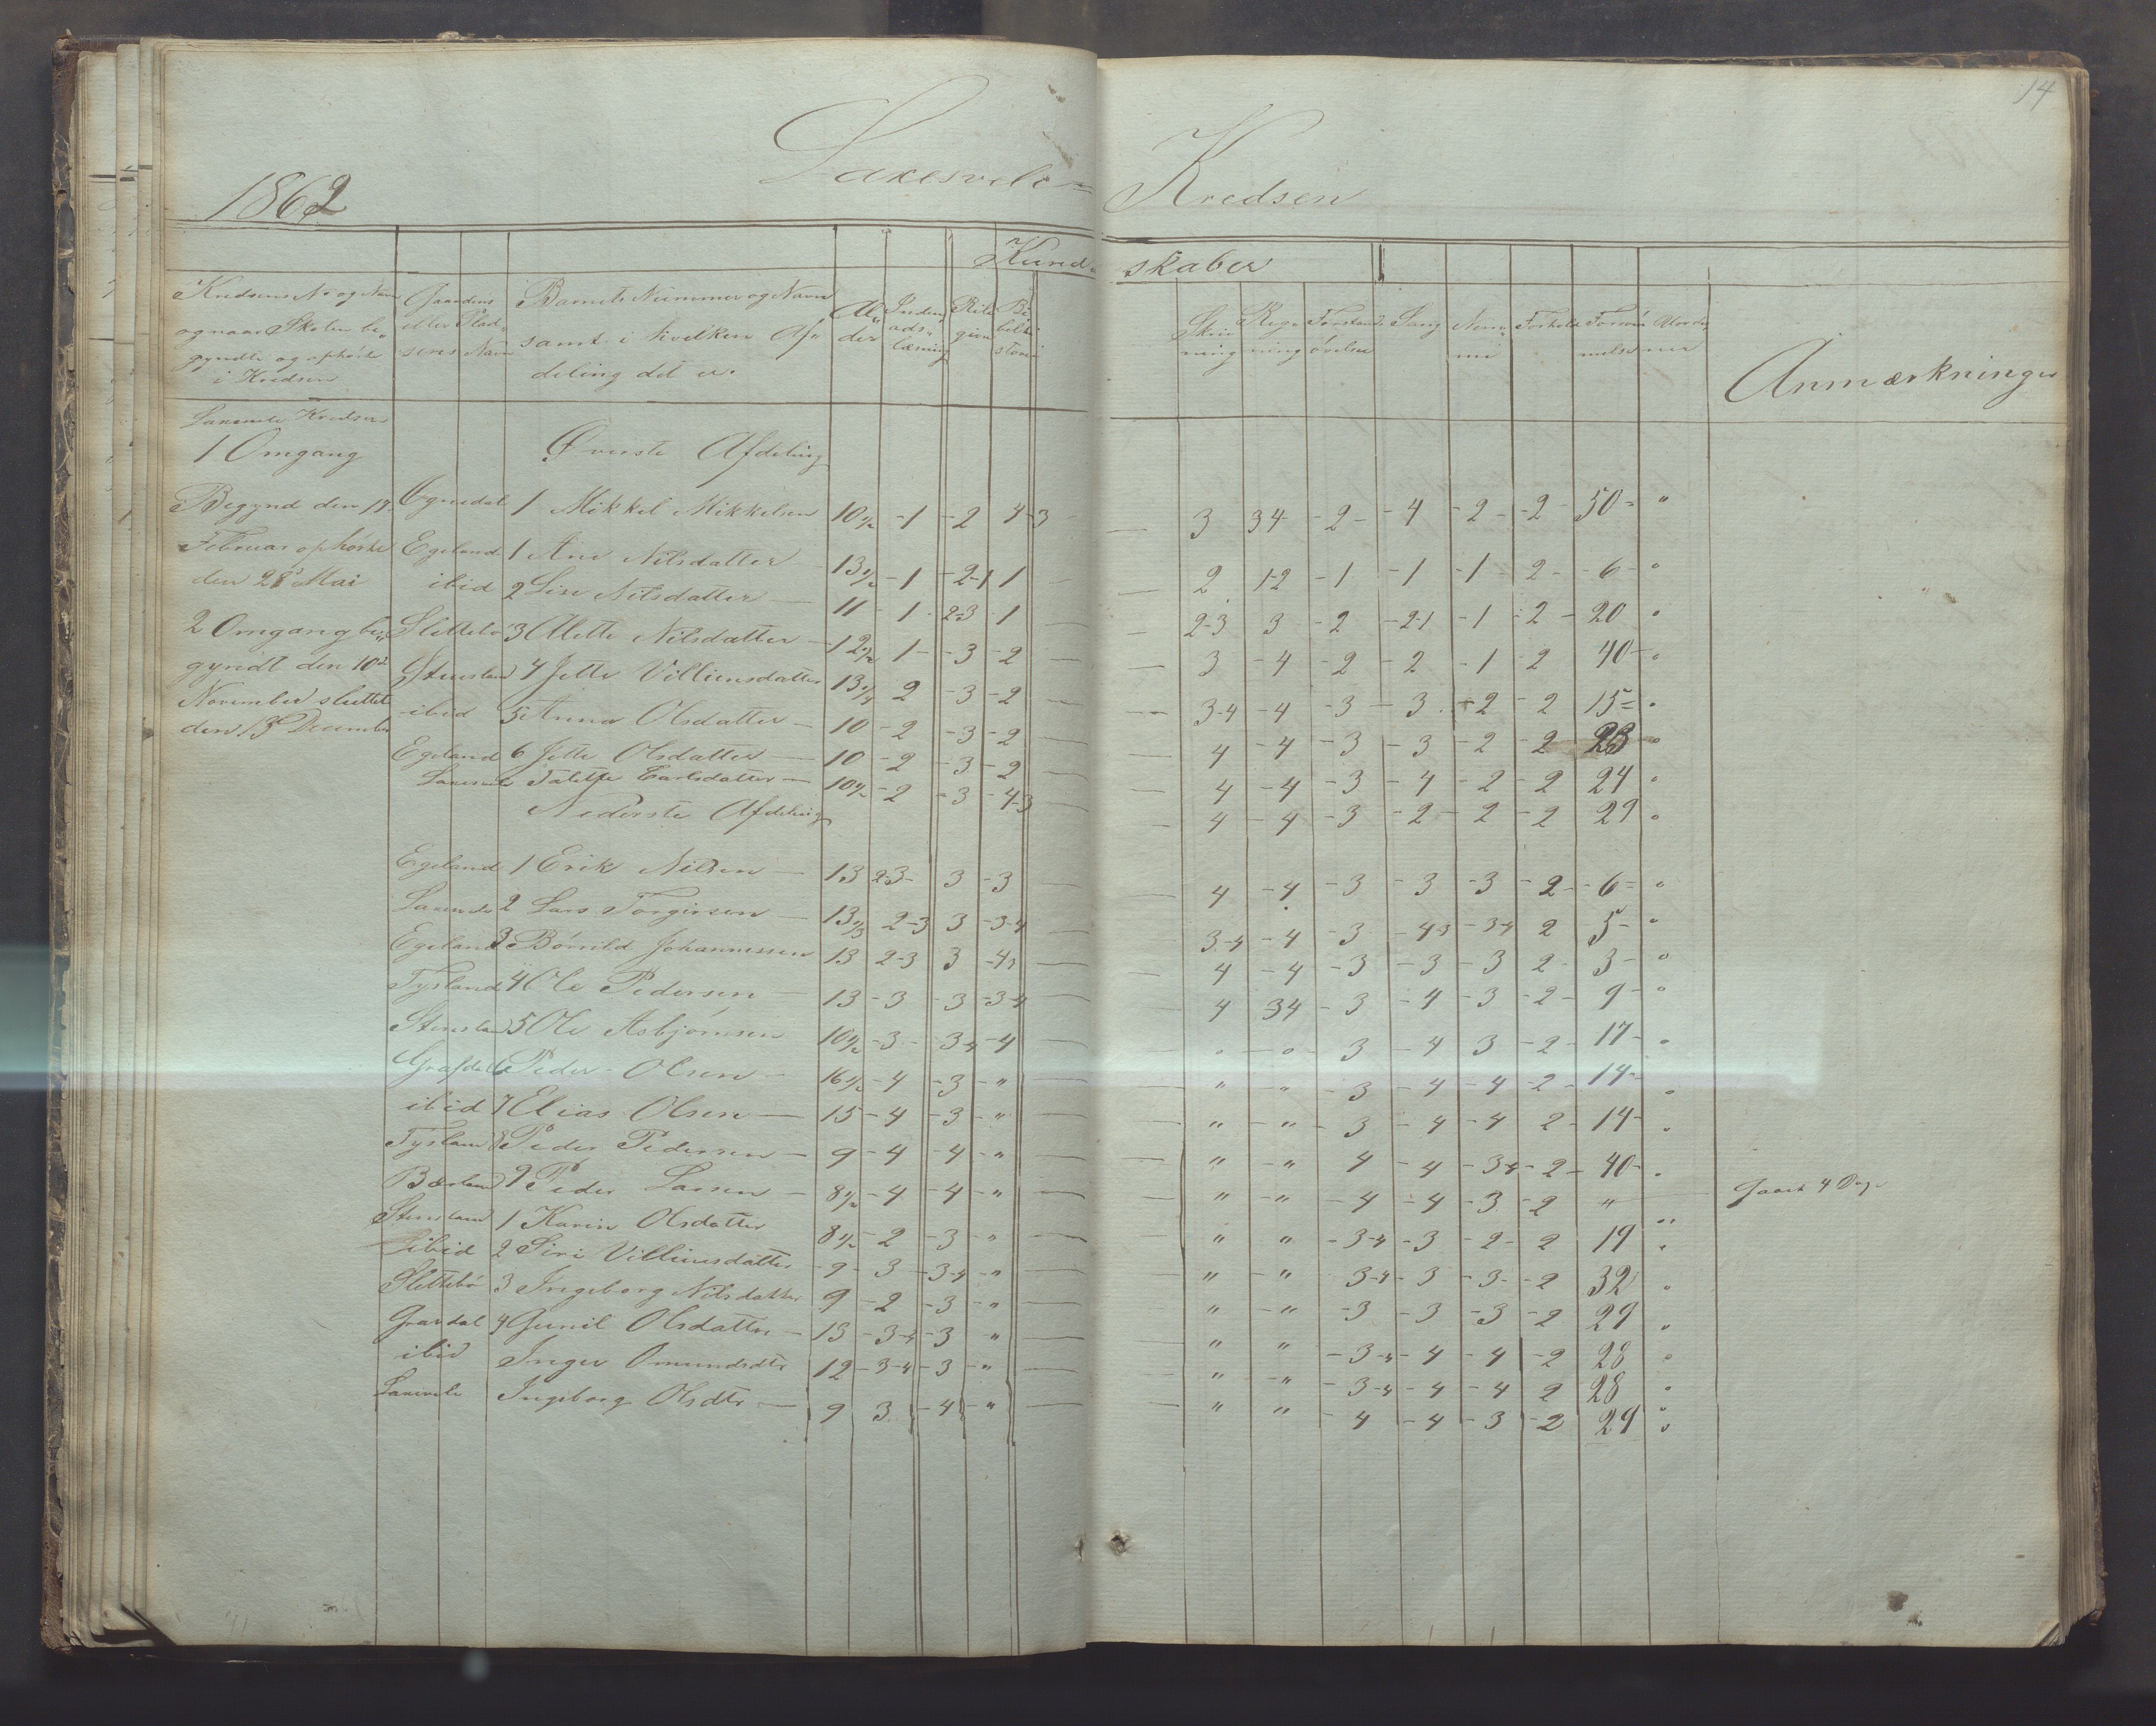 14
1862
Kredsen
Kund-
skaber
Kredsens No og Navn
og naar Skolen be-
gyndte og ophørte
i Kredsen
Gaardens
eller Plad-
sens Navn
Barnets Nummer og Navn
samt i hvilken Af-
deling det er.
Al-
der
Inden-
ads-
læsning
Reli-
gion
Bi-
belhi-
storie
Skriv-
ning
Reg-
ning
Forstands-
øvelse
Sang
Nem-
me
Forhold
Forsøm-
melse
Uorde-
ner
Anmærkninger
Kredsen
1 Omgang
Øverste Afdeling
Begynd den 17
Februar ophørte
den 28 Mai
2 Omgang be-
gyndt den 10de
November sluttet
den 13 December
Ognedal 1 Mikkel Mikkelsen 10 1/2 - 1 - 2 4-3 — 3 34 - 2 - - 4 - 2 - - 2 - 50 - "
Egeland 1 Ane Nilsdatter 13 1/2 - 1 - 2-1 1 — 2 1-2 - 1 - 1 - 1 - 2 - - 6 - "
ibid 2 Lise Nilsdatter — 11 - 1 - 2-3 - 1 — 2-3 3 - 2 - 2-1 - 1 - 2 - 20 "
Slettebø 3 Alette Nilsdatter - 12 1/2 1 - - 3 - 2 — 3 - 4 - 2 - 2 - 1 - 2 40 - "
Stensland 4 Jette Villumsdatter 13 1/4 2 - 3 - 2 — 3-4 - 4 - 3 - 3 - 2 - 2 15 - "
ibid 5 Anna Olsdatter — 10 - 2 - 3 - 2 — 4 - 4 - 3 - 3 - 2 - 2 - 23 - "
Egeland 6 Jette Olsdatter — 10 - 2 - 3 - 2 — 4 - 4 - 3 - 4 - 2 - 2 24 "
Talette Carlsdatter — 10 1/2 - 2 - 3 - 4-3 — 4 - 4 - 3 - 2 - 2 - 2 29 "
Nederste Afdeling
Egeland 1 Erik Nilsen — 13 2-3 - 3 - 3 — 4 - 4 - 3 - 3 - 3 - 2 - - 6 - "
2 Lars Torgersen — 13 1/3 2-3 3 - 3-4 — 3-4 - 4 - 3 - 4-3 - 3-4 2 5 - "
Egeland 3 Johannessen 13 2-3 3 - 4-3 — 4 - 4 - 3 - 3 - 3 2 - 3 - "
Tysland 4 Ole Pedersen — 13 - 3 - 3 - 3-4 — 4 34 - 3 - 4 - 3 - 2 - 9 - "
Stensland 5 Ole Asbjørnsen 10 1/2 - 3 - 3-4 - 4 — " - " - 3 - 4 3 - 2 - 17 - "
6 Peder Olsen — 16 1/2 - 4 - 3 - " — " " - 3 - 4 - 4 - 2 - 14 - "
ibid 7 Elias Olsen — 15 - 4 - 3 - " — " - " - 3 - 4 - 4 2 - 14 - "
Tysland 8 Peder Pedersen — 9 - 4 - 4 - " — " - " 4 - 4 - 3-4 - 2 - 40 - "
9 Peder Larsen — 8 1/2 - 4 - 4 - " — " - " - 4 - 4 - 3 - 2 " Gaaet 4 Dage
Stensland 1 Karen Olsdatter 8 1/2 - 2 - 3 - " — " " - 3-4 - 3 - 2 - 2 19 "
ibid 2 Siri Villumsdatter - 9 - 3 - 3-4 - " — " - " 3-4 - 3 - 3 - 2 32 "
Slettebø 3 Ingeborg Nilsdatter 9 - 2 - 3 - " — " - " - 3 - 3 - 3 - 2 29 "
Gravdal 4 Gunil Olsdatter — 13 - 3-4 - 3 - " — " " - 3-4 - 4 - 4 - 2 28 "
ibid Inger Omundsdtr 12 - 3-4 - 3 - " — " - " - 3-4 - 4 - 4 2 28 "
Ingeborg Olsdtr — 9 3 - 4 - " — " " - 4 - 4 - 3 - 2 29 "